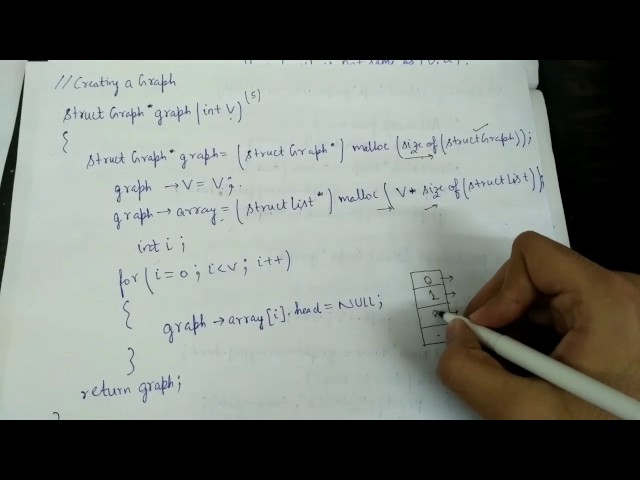 // Creating a Graph
Struct Graph* graph (int V) (5)
{
Struct Graph* graph = (Struct Graph*) malloc (size of (struct Graph));
graph → V = V;
graph → array = (Struct List*) malloc (V * size of (struct List));
int i ;
for (i = 0 ; i < V ; i++)
{
graph → array[i] . head = NULL;
}
return graph;
}
0
1